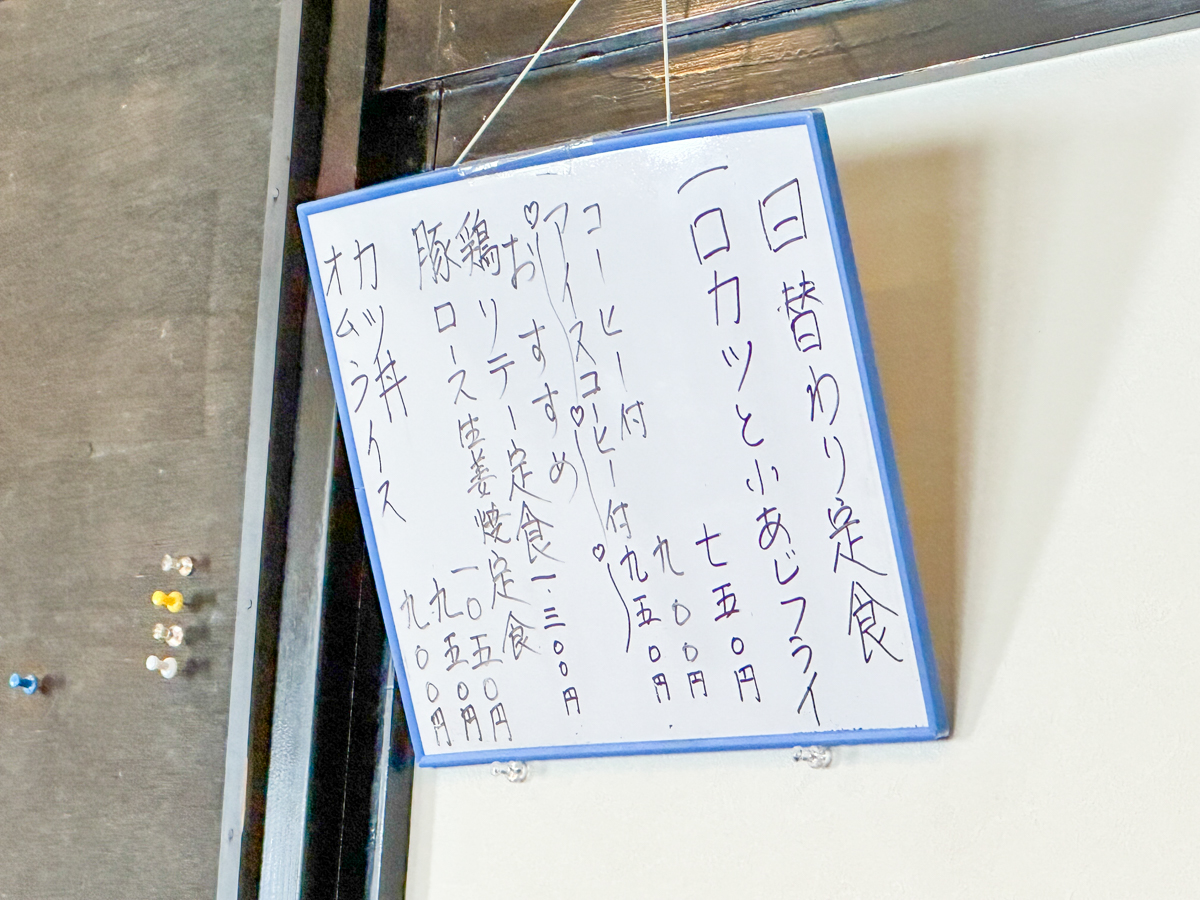 日替わり定食
一口カツと小あじフライ
七五〇円
コーヒー付 九〇〇円
アイスコーヒー付 九五〇円
♡おすすめ♡♡
鶏リテー定食 一、三〇〇円
豚ロース生姜焼定食 一〇五〇円
カツ丼 九五〇円
オムライス 九〇〇円